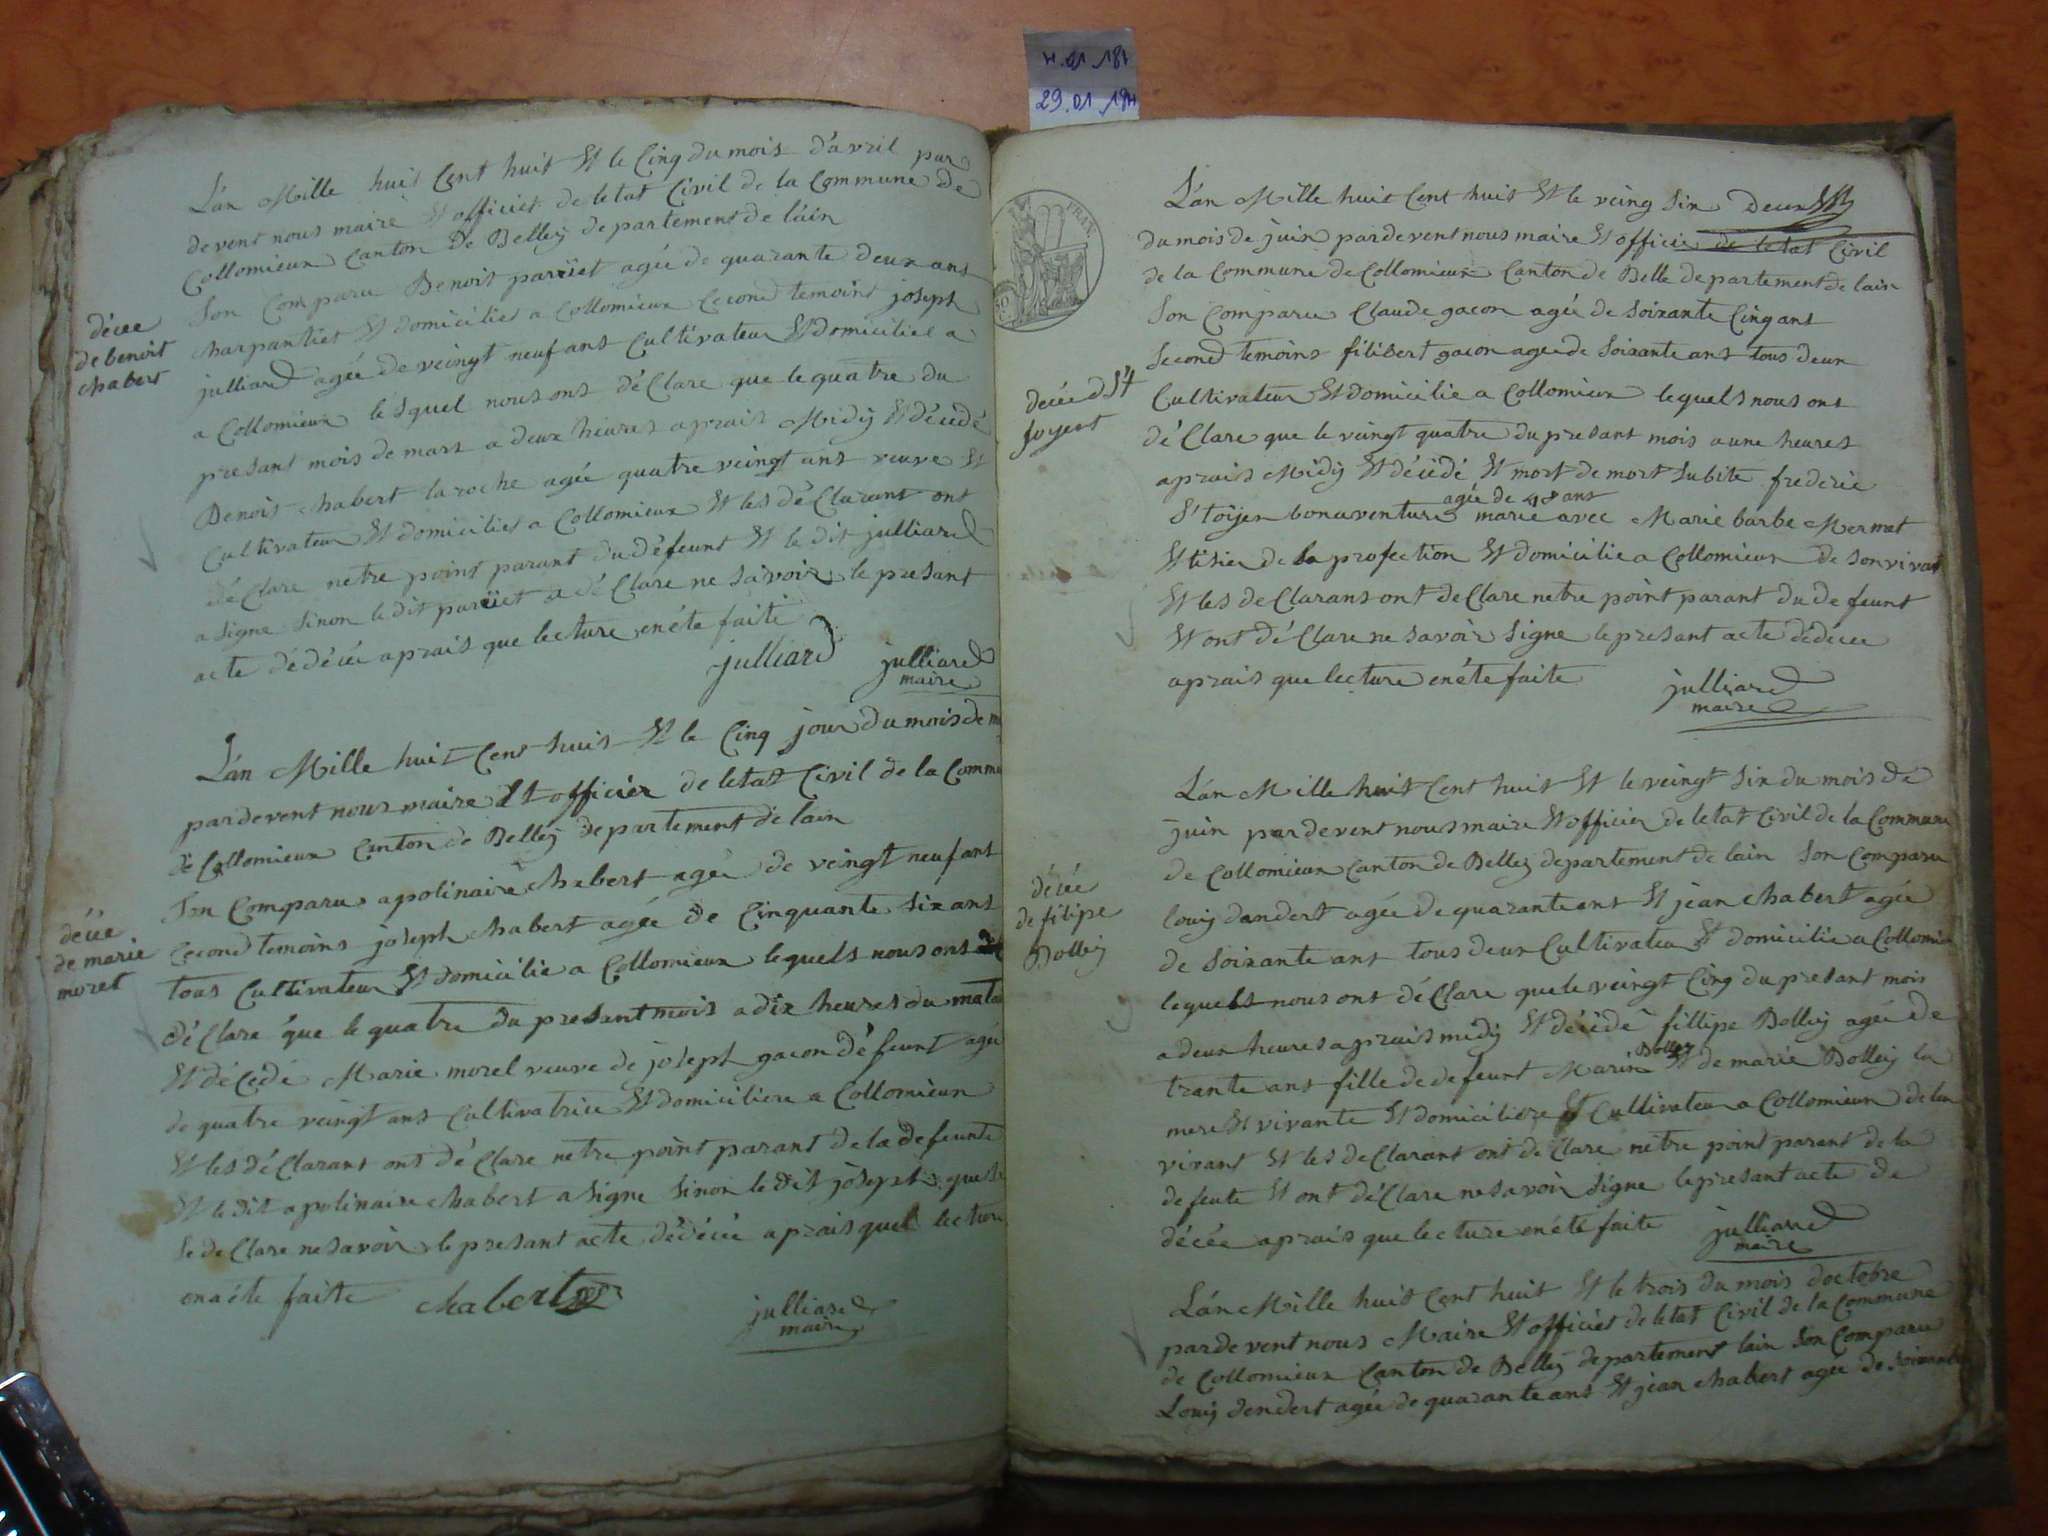 29.01.
L'án Mille huit Cent huit Et le Cinq du mois d'avril par
devent nous maire Et officier de letat Civil de la Commune de
Collomieux Canton de Belleÿ departement de láin
Son Comparu Benoit parüet agée de quarante deux ans
charpantier Et domicilies a Collomieux Cecond temoins joseph
julliard agée de veingt neuf ans Cultivateur Et domicilies a
a Collomieux lesquel nous ons déClare que le quatre du
presant mois de mars a deux heures aprais Midÿ Et décédé
Benoit chabert laroche agée quatre veingt ans veuve Et
Cultivateur Et domicilies a Collomieux Et les déClarant ont
déClare netre point parant du défeunt Et le dit julliard
a signe sinon le dit parüet a déClare ne savoir le presant
acte dédécée aprais que lecture en éte faite
julliard julliard
maire
décee
de benoit
chabert
L'án Mille huit Cent huit Et le Cinq jour du mois de m
pardevent nous maire Et officier de letat Civil de la Commu
de Collomieux Canton de Belleÿ departement de lain
Son Comparu apolinaire chabert agée de veingt neuf ans
Cecond temoins joseph chabert agée de Cinquante six ans
tous Cultivateur Et domicilie a Collomieux lequels nous ons
déClare que le quatre du presant mois a dix heures du mata
Et décede Marie morel veuve de joseph gacon défeunt agée
de quatre veingt ans Cultivatrice Et domiciliere a Collomieux
Et les déClarant ons déClare netre point parant de la defeunte
Et le dit apolinaire chabert a signe sinon le dit joseph que
se deClare ne savoir le presant acte dédécée aprais quel lecture
en a éte faite chabert julliard
maire
décée
de marie
morel
FRAN
L'án Mille huit Cent huit Et le veing six deux
du mois de juin pardevent nous maire Et officier de letat Civil
de la Commune de Collomieux Canton de Belle departement de lain
Son Comparu Claude gacon agée de soixante Cinq ans
Second temoins filibert gacon agée de soixante ans tous deux
Cultivateur Et domicilie a Collomieux lequels nous ont
déClare que le veingt quatre du presant mois a une heures
aprais Midÿ Et décédé Et mort de mort subite frederic
agée de 48 ans
St toÿen bonaventure marie avec Marie barbe Mermet
Et tisier de la profection Et domicilie a Collomieux de son vivat
Et les deClarans ont deClare netre point parant du defeunt
Et ont déClare ne savoir signe le presant acte dédecee
aprais que lecture en éte faite julliard
maire
decée d St
foyent
L'án Mille huit Cent huit Et le veingt six du mois de
juin pardevent nous maire Et officier de letat Civil de la Commune
de Collomieux Canton de Belleÿ departement de lain Son Comparu
louis dandert agée de quarante ans Et jean chabert agée
de soixante ans tous deux Cultivateur Et domicilie a Collomieu
lequels nous ont déClare que le veingt Cinq du presant mois
a deux heures aprais midÿ Et décédé fillipe Bolleÿ agée de
trante ans fille de defeunt Marin Bolleÿ Et de marie Bolleÿ la
mere Et vivante Et domiciliere Et Cultivateur a Collomieux de leu
vivant Et les deClarant ont deClare netre point parant de la
defeute Et ont déClare ne savoir signe le presant acte de
décée aprais que lecture en éte faite julliard
maire
décée
de filipe
Bolleÿ
L'án Mille huit Cent huit Et le trois du mois doctobre
pardevent nous Maire Et officier de letat Civil de la Commune
de Collomieux Canton de Belleÿ departement lain Son Comparu
Louis dendert agée de quarante ans Et jean chabert agée de soixante